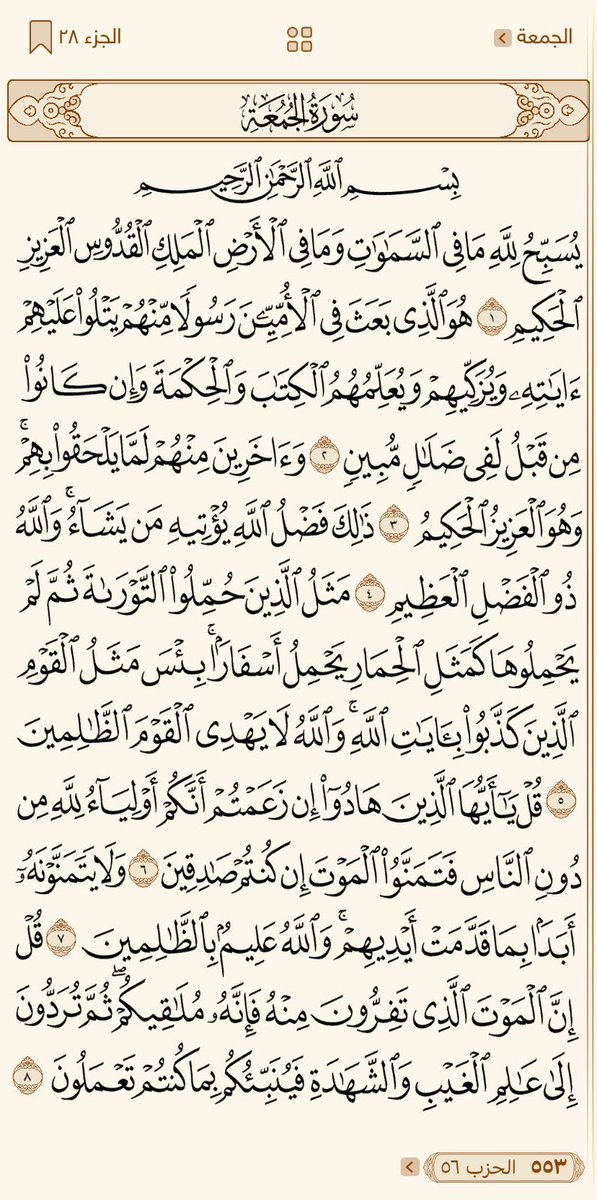 الجمعة
الجزء ٢٨
سُورَةُ الجُمُعَةِ
بِسْمِ ٱللَّهِ ٱلرَّحْمَٰنِ ٱلرَّحِيمِ
يُسَبِّحُ لِلَّهِ مَا فِى ٱلسَّمَٰوَٰتِ وَمَا فِى ٱلْأَرْضِ ٱلْمَلِكِ ٱلْقُدُّوسِ ٱلْعَزِيزِ
ٱلْحَكِيمِ ١ هُوَ ٱلَّذِى بَعَثَ فِى ٱلْأُمِّيِّـۧنَ رَسُولًا مِّنْهُمْ يَتْلُوا۟ عَلَيْهِمْ
ءَايَٰتِهِۦ وَيُزَكِّيهِمْ وَيُعَلِّمُهُمُ ٱلْكِتَٰبَ وَٱلْحِكْمَةَ وَإِن كَانُوا۟
مِن قَبْلُ لَفِى ضَلَٰلٍ مُّبِينٍ ٢ وَءَاخَرِينَ مِنْهُمْ لَمَّا يَلْحَقُوا۟ بِهِمْ ۚ
وَهُوَ ٱلْعَزِيزُ ٱلْحَكِيمُ ٣ ذَٰلِكَ فَضْلُ ٱللَّهِ يُؤْتِيهِ مَن يَشَآءُ ۚ وَٱللَّهُ
ذُو ٱلْفَضْلِ ٱلْعَظِيمِ ٤ مَثَلُ ٱلَّذِينَ حُمِّلُوا۟ ٱلتَّوْرَىٰةَ ثُمَّ لَمْ
يَحْمِلُوهَا كَمَثَلِ ٱلْحِمَارِ يَحْمِلُ أَسْفَارًۢا ۚ بِئْسَ مَثَلُ ٱلْقَوْمِ
ٱلَّذِينَ كَذَّبُوا۟ بِـَٔايَٰتِ ٱللَّهِ ۚ وَٱللَّهُ لَا يَهْدِى ٱلْقَوْمَ ٱلظَّٰلِمِينَ
٥ قُلْ يَٰٓأَيُّهَا ٱلَّذِينَ هَادُوٓا۟ إِن زَعَمْتُمْ أَنَّكُمْ أَوْلِيَآءُ لِلَّهِ مِن
دُونِ ٱلنَّاسِ فَتَمَنَّوُا۟ ٱلْمَوْتَ إِن كُنتُمْ صَٰدِقِينَ ٦ وَلَا يَتَمَنَّوْنَهُۥٓ
أَبَدًۢا بِمَا قَدَّمَتْ أَيْدِيهِمْ ۚ وَٱللَّهُ عَلِيمٌۢ بِٱلظَّٰلِمِينَ ٧ قُلْ
إِنَّ ٱلْمَوْتَ ٱلَّذِى تَفِرُّونَ مِنْهُ فَإِنَّهُۥ مُلَٰقِيكُمْ ۖ ثُمَّ تُرَدُّونَ
إِلَىٰ عَٰلِمِ ٱلْغَيْبِ وَٱلشَّهَٰدَةِ فَيُنَبِّئُكُم بِمَا كُنتُمْ تَعْمَلُونَ ٨
٥٥٣ الحزب ٥٦